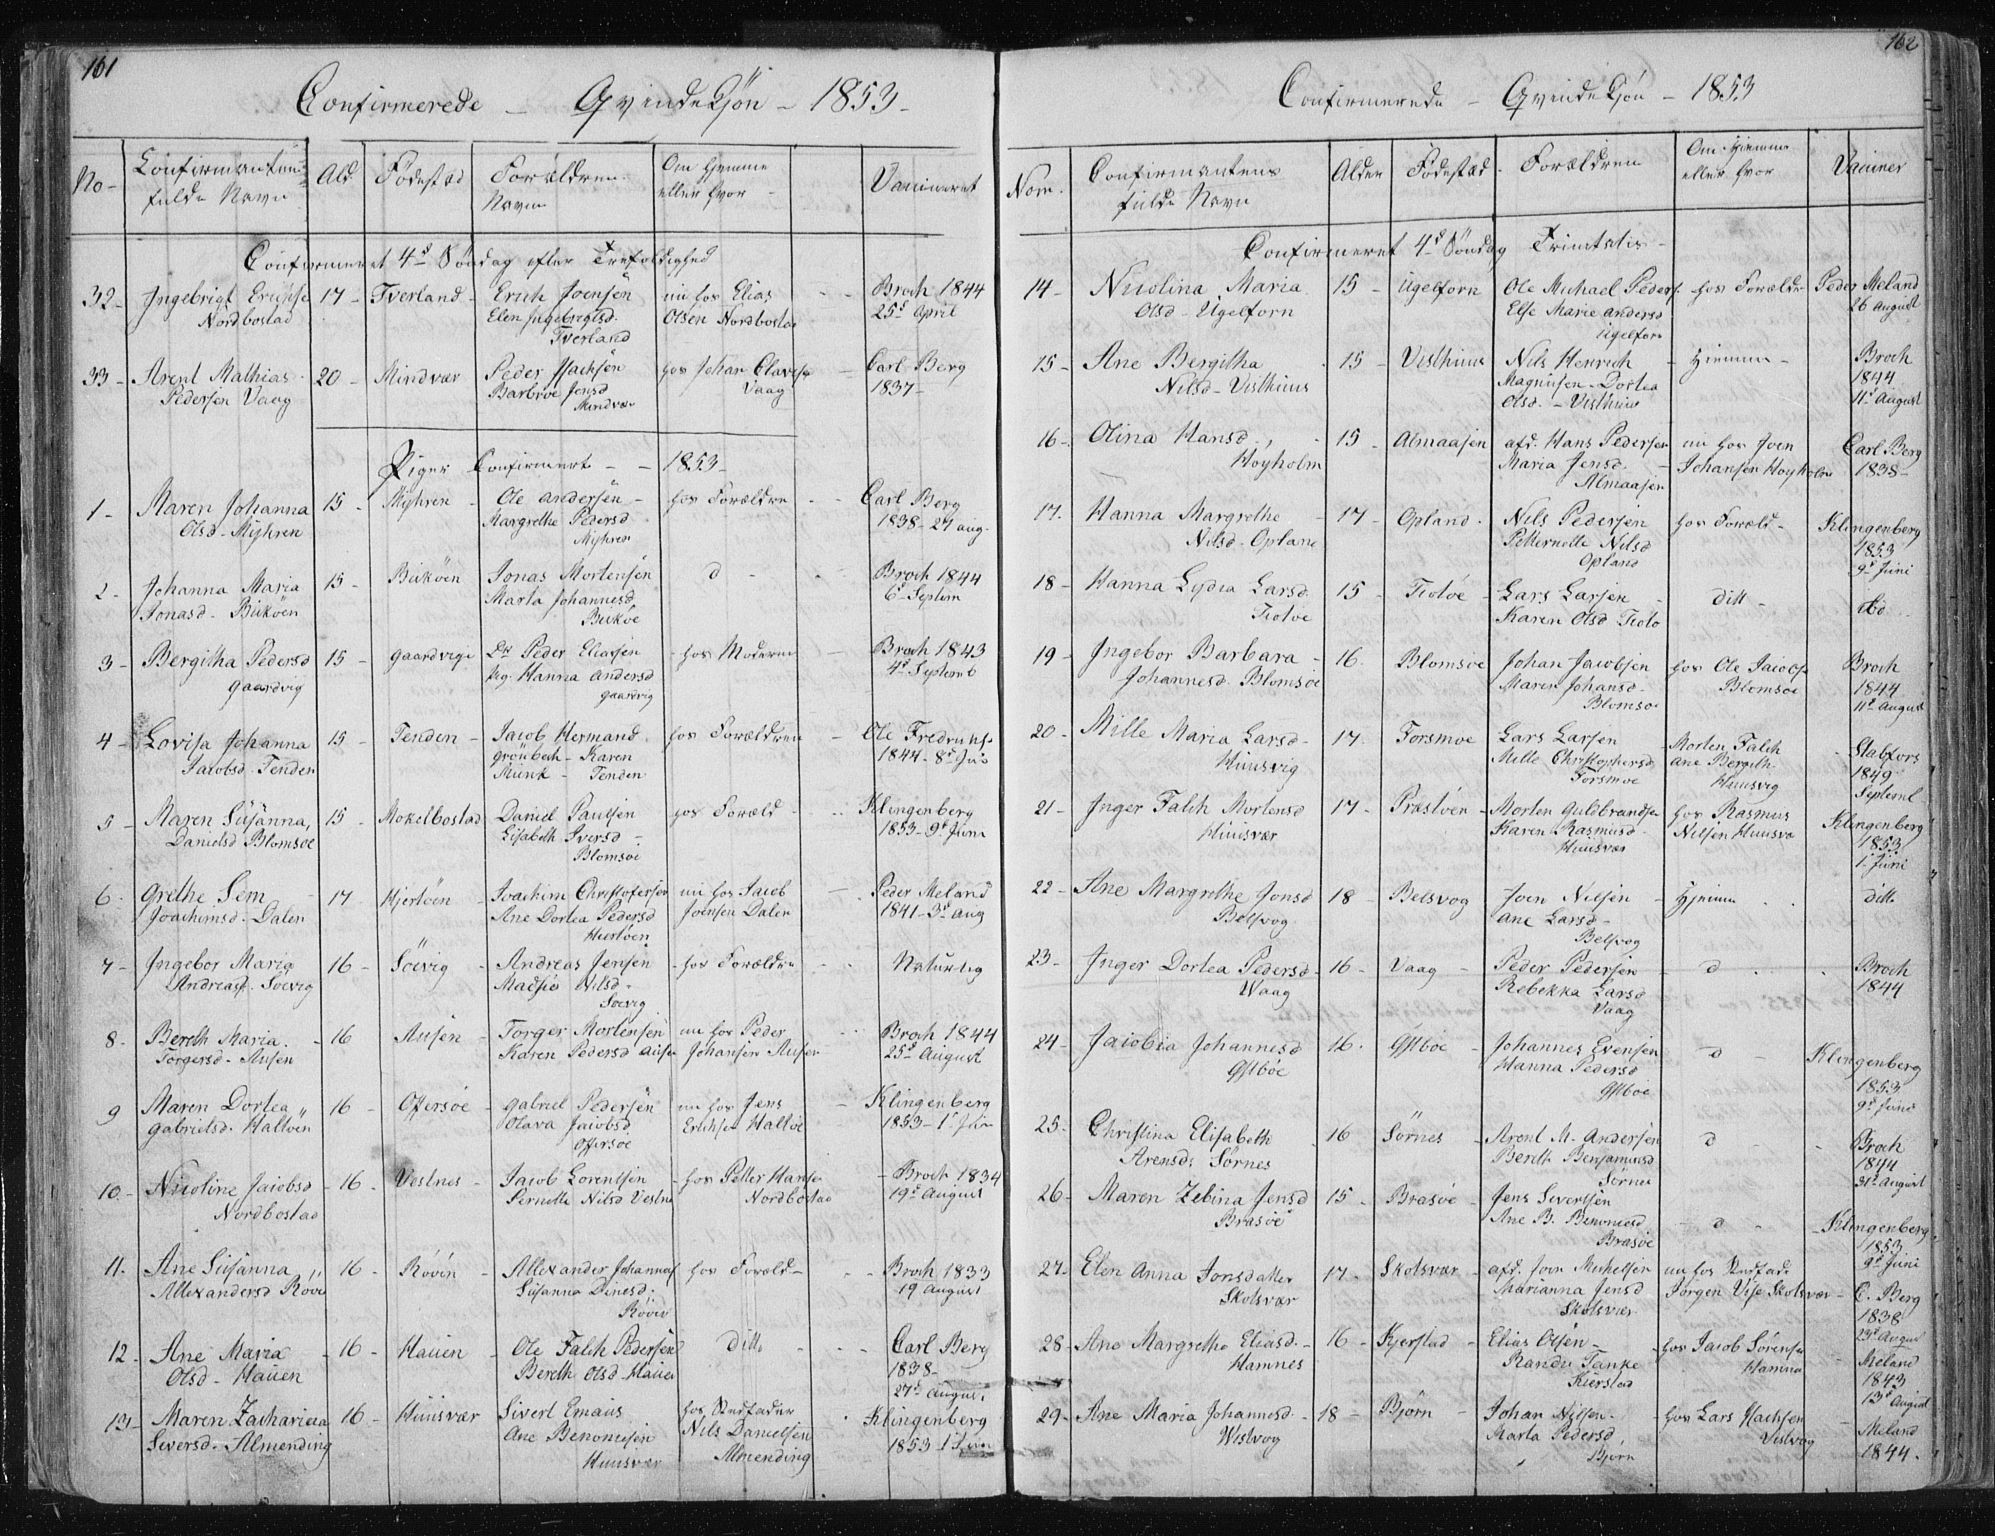 161
Confirmerede - Qvindekjøn - 1853 -
No - Confirmantens fulde Navn Ald Fødested Forældrenes Navn Om hjemme eller hvor - Vaccineret
Confirmeret 4de Søndag efter Trefoldighed
32 - Ingebrigt Nordbostad 17 - Tverland - Erich Joensen Elen Ingebrigtsd. Tverland nu hos Elias Olsen Nordbostad Broch 1844 25de April
33 - Arent Mathias Pedersen Vaag 20 - Mindvær Peder Isachsen Barbroe Jensd Mindvær hos Johan Vaag Carl Berg 1837 -
Piger Confirmert - - 1853 -
1 - Maren Johanna Olsd - Myhren 15 - Myhren - Ole Andersen - Margrethe Pedersd Myhren hos Forældre - - Carl Berg 1838 - 27 aug.
2 - Johanna Maria Jonasd - Bukøen 15 - Bukøen Jonas Mortensen Marta Johannesd Bukøe d - - Broch 1844 6te Septem
3 - Bergitha Pedersd Gaardvig 15 - Gaardvig Peder Eliasen Hanna Andersd Gaardvig - hos Moderen - Broch 1843 4de Septemb
4 - Lovisa Johanna Jacobsd - Tenden 15 - Tenden - Jacob Hermand Grönbech - Karen Munk - Tenden hos Forældren - Ole 1844 - 8de
5 - Maren Susanna, Danielsd Blomsøe 15 - Mokelbostad Daniel Paulsen Lisabeth Siversd - Blomsøe hos Foræld - - - Klingenberg 1853 - 9de Juni
6 - Grethe Sem - Joachimsd - Dalen 17 - Hjortøen - Joachim Christofersen Ane Dortea Pedersd nu hos Jacob Joensen Dalen - Peder Meland 1841 - 3de Aug
7 - Ingebor Maria Andreasd. Soevig 16 - Søevig - Andreas Jensen Nilsd - Soevig - hos Forældre - - Naturlig
8 - Bereth Maria. Torgersd - Ausen - 16 Ausen - Torger Mortensen Karen Pedersd Ausen nu hos Peder Johansen Ausen - - Broch 1844 25de August
9 Maren Dortea Gabrielsd. Halløen 16 - Offersøe - Gabriel Pedersen Olava Jacobsd Offersøe nu hos Jens Halløe - Klingenberg 1853 - 1te
10 - Nicoline Jacobsd - Nordbostad 16 - Vestnes - Jacob Lorentsen Pernelle Nilsd Vestnes - hos Petter Hansen Nordbostad - Broch 1834 19de August
11. Ane Susanna Allexandersd Røven 16 - Røven - Allexander Johannes Susanna Dinesd. hos Foræld - - - Broch 1833 19 August
12 - Ane Maria Olsd - Hauen - 16 - Hauen - Ole Falch Pedersen Bereth Olsd - Hauen Ditto - - - Carl Berg 1838 - 27de August
13 - Maren Zacharina Siversd - Almending 16 - Huusvær Sivert Emaus Ane Huusvær hos Stedfader Nils Danielsen Almending - Klingenberg 1853
162
Confirmerede - Qvindekjøn - 1853
Nom. Confirmantens fulde Navn Alder Fødested - Forældren Om Hjemme eller hvor Vaccineret
Confirmeret 4de Søndag Trinitatis -
14 - Nicolina Maria Olsd - Ugelforn 15 - Ugelforn Ole Michael Peders Else Marie Andersd Ugelforn - hos Foræld Peder Meland 26 August
15 - Ane Bergitha Nilsd - Visthuus - 15 - Visthuus Nils Henrich Magnusen - Dortea Olsd. - Visthuus Hiemme - Broch 1844 11te August
16 - Olina Hansd, Hoyholm - 15 - Almaasen afd. Hans Pedersen Maria Jensd - Almaasen nu hos Joen Johansen Hoyholm Carl Berg 1838 -
17. Hanna Margrethe - Nilsd - Opland 17 - Opland. Nils Pedersen Pellernelle Nilsd Opland hos Foræld - Klingenberg 1853 9de Juni
18 - Hanna Lydia Larsd. Tiotøe 15 - Tiotøe - Lars Larsen - Karen Olsd Tioto ditt - do
19 - Ingebor Barbara - Johannesd. Blomsøe 16. Blomsøe Johan Jacobsen Maren Johansd - Blomsøe hos Ole Jacobs Blomsøe Broch 1844 11te August
20 - Mille Maria Larsd - Huusvig 17. Forsmoe Lars Larsen Mille Christophersd Forsmoe Morten Falch Ane Bergith - Huusvig - Stabfors 1849 Septemb
21 - Inger Falch Mortensd Huusvær 17 - Præstøen - Morten Guldbrandsen Karen Rasmusd - Huusvær hos Rasmus Nilsen Huusvæ Klingenberg 1853 1te Juni
22 - Ane Margrethe Jonsd Belsvog 18 - Belsvog Joen Nilsen - Ane Larsd - Belsvog Hjemme - - ditto
23 - Inger Dortea Pedersd - Waag 16 - Vaag - Peder Pedersen Rebekka Larsd Vaag - d - - Broch 1844
24 - Jacobia Johannesd Østbøe 16. Østbøe - Johannes Evensen Hanna Pedersd Østbøe d - - Klingenberg 1853 9de Juni
25 - Christina Elisabeth Arensd: Sørnes - 16 Sørnes - Arent M. Andersen Bereth Benjaminsd Sørnes d - - Broch 1844 31te August
26 - Maren Zebina Jensd Brasøe 15 - Brasøe - Jens Sivertsen Ane B. Benoniesd Brasøe - d - Klingenberg 1853 9de Juni
27 - Elen Anna Jonsdatter Skolsvær 17 - Skolsvær - afd. Joen Michelsen Marianna Jensd Skolsvær nu hos Stedfad. Jørgen Skolsvær - C. Berg 1838 23de August
28 - Ane Margrethe Eliasd. - Hamnes 16 - Kjerstad - Elias Olsen - Randii Tanke Kierstad - hos Jacob Sørensen Hamnes - Meland 1843 13de August
29 - Ane Maria Johannesd - Wistvog 18 - Bjørn - Johan Nilsen - Marta Pedersd, Bjørn hos Lars Isachsen Vistvog - Meland 1844.